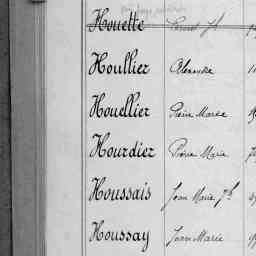 Houette
Houllier Alexandre
Houellier Pierre Marie
Hourdier Pierre Marie
Houssais Jean Marie Jh
Houssay Jean Marie